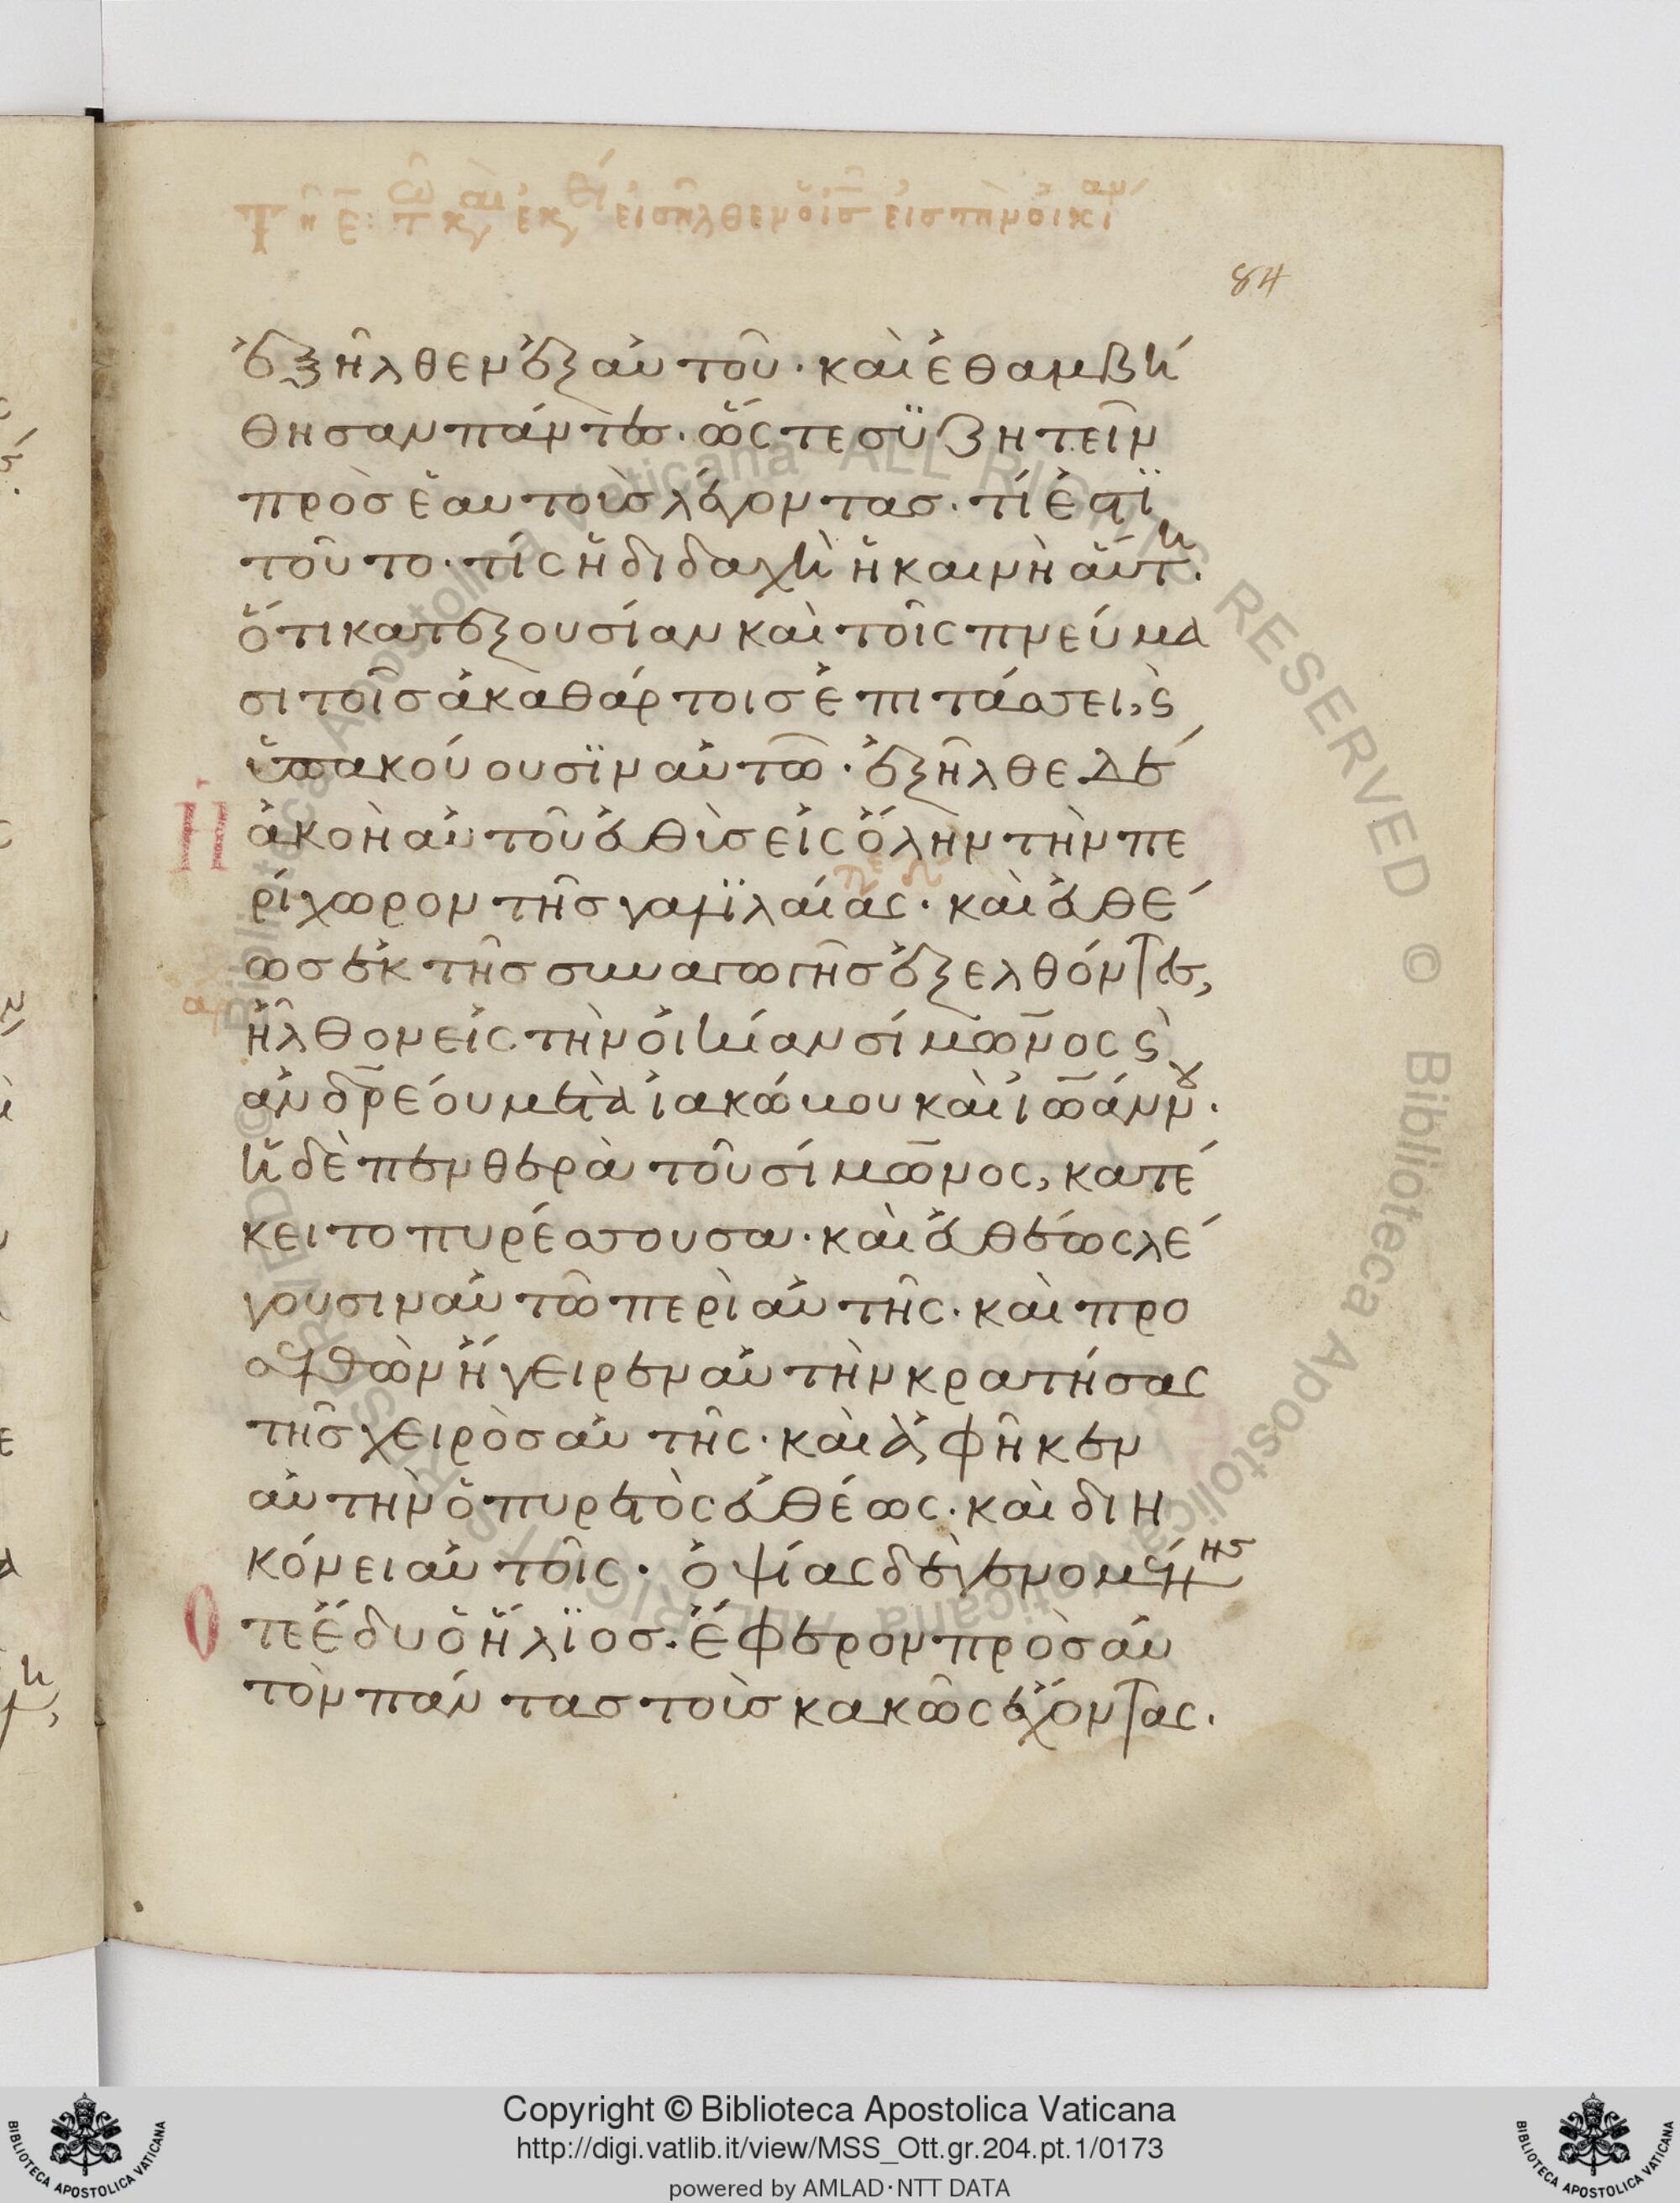 84
ἐξῆλθεν ἐξ αὐτοῦ· καὶ ἐθαμβή
θησαν πάντες· ὥςτε συζητεῖν
πρὸς ἑαυτοὺς λέγοντας· τί ἐστϊ
τοῦτο· τίς ἡ διδαχὴ ἡ καινὴ αὕτη·
ὅτι κατεξουσίαν καὶ τοῖς πνεύμα
σι τοῖς ἀκαθάρτοις ἐπιτάσσει, ϗ
ὑπακούουσϊν αὐτῶ· ἐξῆλθε δὲ
ἡ ἀκοὴ αὐτοῦ εὐθὺς εἰς ὅλην τὴν πε
ρίχωρον τῆς γαλϊλαίας· καὶ εὐθέ
ως ἐκ τῆς συναγωγῆς ἐξελθόντες,
ἦλθον εἰς τὴν οἰκίαν σίμωνος ϗ
ἀνδρέου μετὰ ἰακώμου καὶ ἰωάννου·
ἡ δὲ πενθερὰ τοῦ σίμωνος, κατέ
κειτο πυρέσσουσα· καὶ εὐθέως λέ
γουσιν αὐτῶ περὶ αὐτῆς· καὶ προ
σελθὼν ἤγειρεν αὐτὴν κρατήσας
τῆς χειρὸς αὐτῆς· καὶ ἀφῆκεν
αὐτὴν ὁ πυρετὸς εὐθέως· καὶ διη
κόνει αὐτοῖς· ὀψίας δὲ γενομένης
ὅτε ἔδυ ὁ ἥλϊος· ἔφερον πρὸς αὐ
τὸν πάντας τοὺς κακῶς ἔχοντας·
Biblioteca Apostolica Vaticana ALL RIGHTS RESERVED ©
Copyright © Biblioteca Apostolica Vaticana
http://digi.vatlib.it/view/MSS_Ott.gr.204.pt.1/0173
powered by AMLAD·NTT DATA
BIBLIOTECA APOSTOLICA VATICANA
BIBLIOTECA APOSTOLICA VATICANA